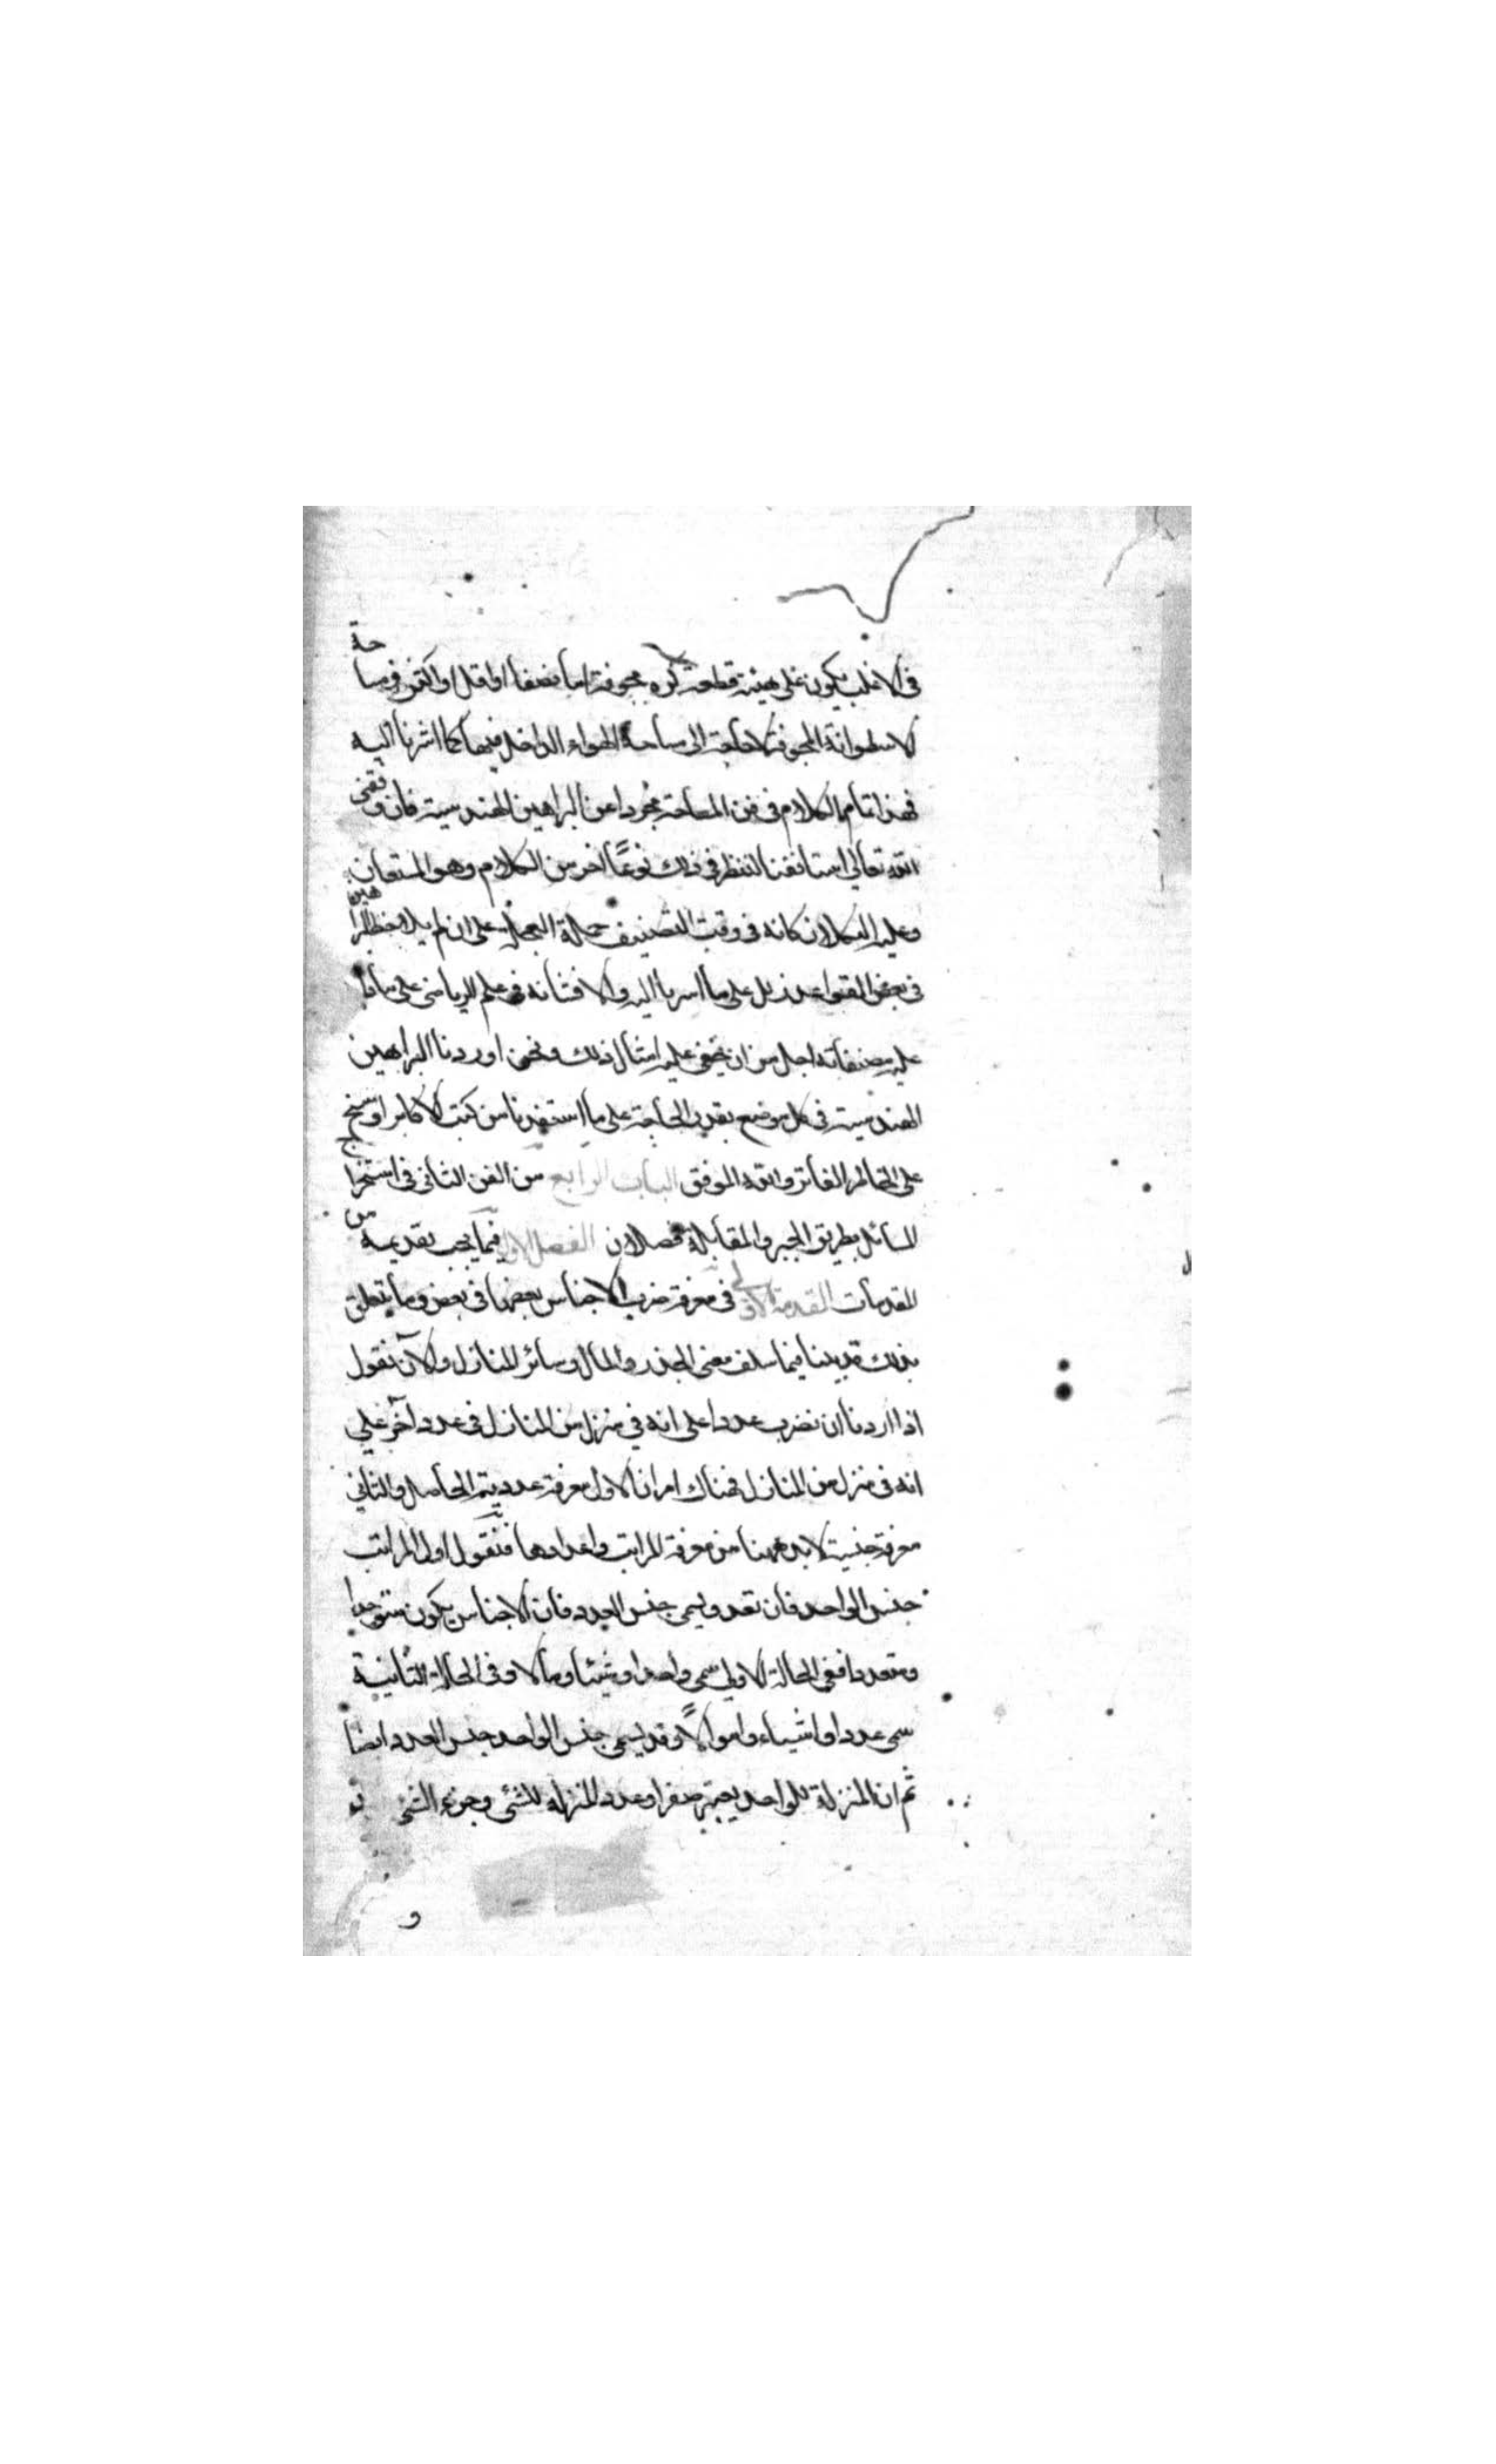 في الاغلب يكون على هيئة قطعة كره مجوفة اما نصفا او اقل او اكثر وفي مساحة
الاسطوانة المجوفة لا حاجة الى مساحة الهواء الداخل فيها كما اشرنا اليه
فهذا تمام الكلام في فن المساحة مجردا عن البراهين الهندسية فان وفقني
الله تعالى استانفنا لننظر في ذلك نوعًا اخر من الكلام وهو المستعان
وعليه التكلان كانه في وقت التصنيف حملة العجلة على ان لم يلاحظ البراهين
في بعض القواعد على ما اسرنا اليه والا فشانه في علم الرياضي على ما
عليه مصنفاته اجل من ان يخفى عليه امثال ذلك ونحن اوردنا البراهين
الهندسية في كل موضع بقدر الحاجة على ما استفدنا من كتب الاكابر او سنح
على الخاطر الفاتر والله الموفق الباب الرابع من الفن الثاني في استخراج
المسائل بطريق الجبر والمقابلة فصلان الفصل الاول فيما يجب تقديمه من
المقدمات المقدمة الاولى في معرفة ضرب الاجناس بعضها في بعض وما يتعلق
بذلك قد بينا فيما سلف معنى الجذر والمال وسائر المنازل والآن نقول
اذا اردنا ان نضرب عددا على انه في منزل من المنازل في عدد آخر على
انه في منزل من المنازل فهناك امران الاول معرفة عددية الحاصل والثاني
معرفة جنسيته لا بد ههنا من معرفة المراتب واعدادها فنقول اول المراتب
جنس الواحد فان تعدد يسمى جنس العدد فان الاجناس يكون متوحدا
ومتعددا ففي الحالة الاولى سمى واحدا وشيئا ومالا وفي الحالة الثانية
سمى عددا واشياء واموالاً وقد يسمى جنس الواحد جنس العدد ايضا
ثم ان المنزلة للواحد يعتبر صفرا وعدد المنزلة للشئ وجزء الشئ
و